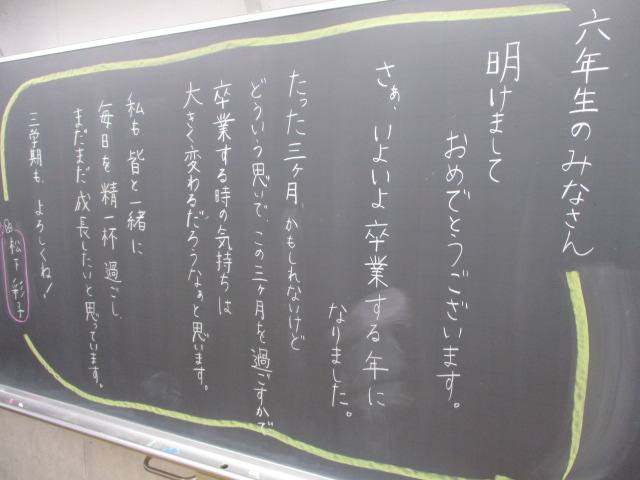 六年生のみなさん
明けまして
おめでとうございます。
さぁ、いよいよ卒業する年に
なりました。
たった三ヶ月、かもしれないけど
どういう思いで、この三ヶ月を過ごすかで
卒業する時の気持ちは
大きく変わるだろうなぁと思います。
私も皆と一緒に
毎日を精一杯過ごし
まだまだ成長したいと思っています。
三学期も、よろしくね！
松下 彩子